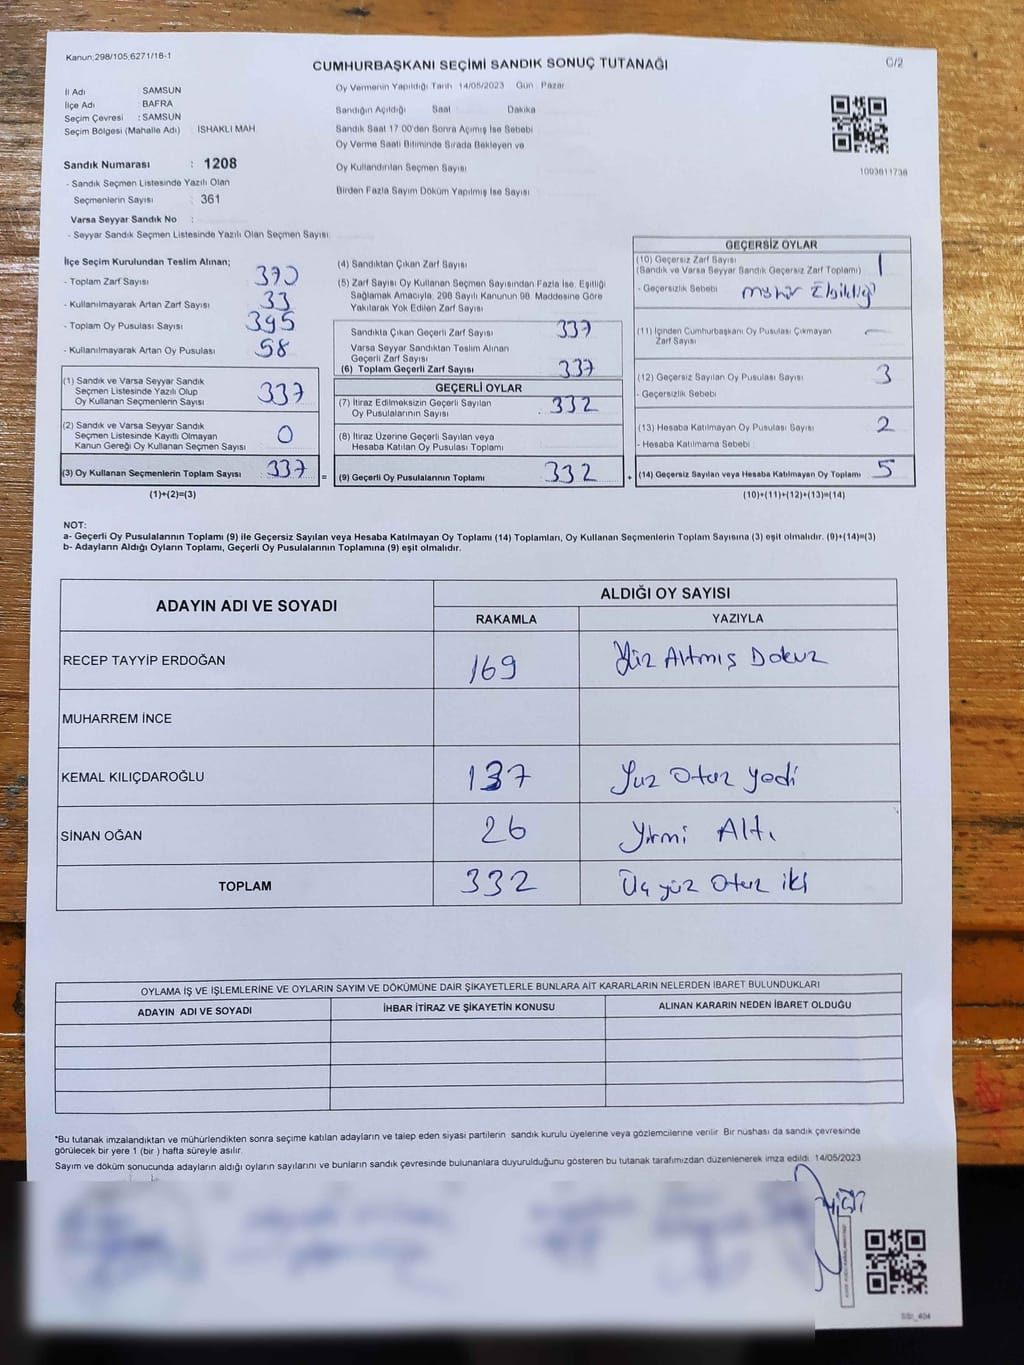 Kanun;298/105;6271/16-1
CUMHURBAŞKANI SEÇİMİ SANDIK SONUÇ TUTANAĞI
C/2
İl Adı SAMSUN
İlçe Adı : BAFRA
Seçim Çevresi : SAMSUN
Seçim Bölgesi (Mahalle Adı) İSHAKLI MAH
Sandık Numarası : 1208
- Sandık Seçmen Listesinde Yazılı Olan
Seçmenlerin Sayısı : 361
Varsa Seyyar Sandık No :
- Seyyar Sandık Seçmen Listesinde Yazılı Olan Seçmen Sayısı:
Oy Vermenin Yapıldığı Tarih 14/05/2023 Gün Pazar
Sandığın Açıldığı Saat Dakika
Sandık Saat 17:00'den Sonra Açımış İse Sebebi
Oy Verme Saati Bitiminde Sırada Bekleyen ve
Oy Kullandırılan Seçmen Sayısı
Birden Fazla Sayım Döküm Yapılmış İse Sayısı
1003811738
İlçe Seçim Kurulundan Teslim Alınan;
- Toplam Zarf Sayısı 370
- Kullanılmayarak Artan Zarf Sayısı 33
- Toplam Oy Pusulası Sayısı 395
- Kullanılmayarak Artan Oy Pusulası 58
(1) Sandık ve Varsa Seyyar Sandık
Seçmen Listesinde Yazılı Olup
Oy Kullanan Seçmenlerin Sayısı 337
(2) Sandık ve Varsa Seyyar Sandık
Seçmen Listesinde Kayıtlı Olmayan
Kanun Gereği Oy Kullanan Seçmen Sayısı 0
(3) Oy Kullanan Seçmenlerin Toplam Sayısı 337 =
(1)+(2)=(3)
(4) Sandıktan Çıkan Zarf Sayısı
(5) Zarf Sayısı Oy Kullanan Seçmen Sayısından Fazla İse, Eşitliği
Sağlamak Amacıyla, 298 Sayılı Kanunun 98. Maddesine Göre
Yakılarak Yok Edilen Zarf Sayısı
Sandıkta Çıkan Geçerli Zarf Sayısı 337
Varsa Seyyar Sandıktan Teslim Alınan
Geçerli Zarf Sayısı
(6) Toplam Geçerli Zarf Sayısı 337
GEÇERLİ OYLAR
(7) İtiraz Edilmeksizin Geçerli Sayılan
Oy Pusulalarının Sayısı 332
(8) İtiraz Üzerine Geçerli Sayılan veya
Hesaba Katılan Oy Pusulası Toplamı
(9) Geçerli Oy Pusulalarının Toplamı 332 +
GEÇERSİZ OYLAR
(10) Geçersiz Zarf Sayısı
(Sandık ve Varsa Seyyar Sandık Geçersiz Zarf Toplamı) 1
- Geçersizlik Sebebi mühür Eksikliği
(11) İçinden Cumhurbaşkanı Oy Pusulası Çıkmayan
Zarf Sayısı —
(12) Geçersiz Sayılan Oy Pusulası Sayısı 3
- Geçersizlik Sebebi
(13) Hesaba Katılmayan Oy Pusulası Sayısı 2
- Hesaba Katılmama Sebebi
(14) Geçersiz Sayılan veya Hesaba Katılmayan Oy Toplamı 5
(10)+(11)+(12)+(13)=(14)
NOT:
a- Geçerli Oy Pusulalarının Toplamı (9) ile Geçersiz Sayılan veya Hesaba Katılmayan Oy Toplamı (14) Toplamları, Oy Kullanan Seçmenlerin Toplam Sayısına (3) eşit olmalıdır. (9)+(14)=(3)
b- Adayların Aldığı Oyların Toplamı, Geçerli Oy Pusulalarının Toplamına (9) eşit olmalıdır.
ADAYIN ADI VE SOYADI
ALDIĞI OY SAYISI
RAKAMLA YAZIYLA
RECEP TAYYİP ERDOĞAN 169 Yüz Altmış Dokuz
MUHARREM İNCE
KEMAL KILIÇDAROĞLU 137 Yuz Otuz yedi
SİNAN OĞAN 26 Yirmi Altı
TOPLAM 332 Üç yüz Otuz iki
OYLAMA İŞ VE İŞLEMLERİNE VE OYLARIN SAYIM VE DÖKÜMÜNE DAİR ŞİKAYETLERLE BUNLARA AİT KARARLARIN NELERDEN İBARET BULUNDUKLARI
ADAYIN ADI VE SOYADI İHBAR İTİRAZ VE ŞİKAYETİN KONUSU ALINAN KARARIN NEDEN İBARET OLDUĞU
*Bu tutanak imzalandıktan ve mühürlendikten sonra seçime katılan adayların ve talep eden siyasi partilerin sandık kurulu üyelerine veya gözlemcilerine verilir. Bir nüshası da sandık çevresinde
görülecek bir yere 1 (bir ) hafta süreyle asılır.
Sayım ve döküm sonucunda adayların aldığı oyların sayılarını ve bunların sandık çevresinde bulunanlara duyurulduğunu gösteren bu tutanak tarafımızdan düzenlenerek imza edildi. 14/05/2023